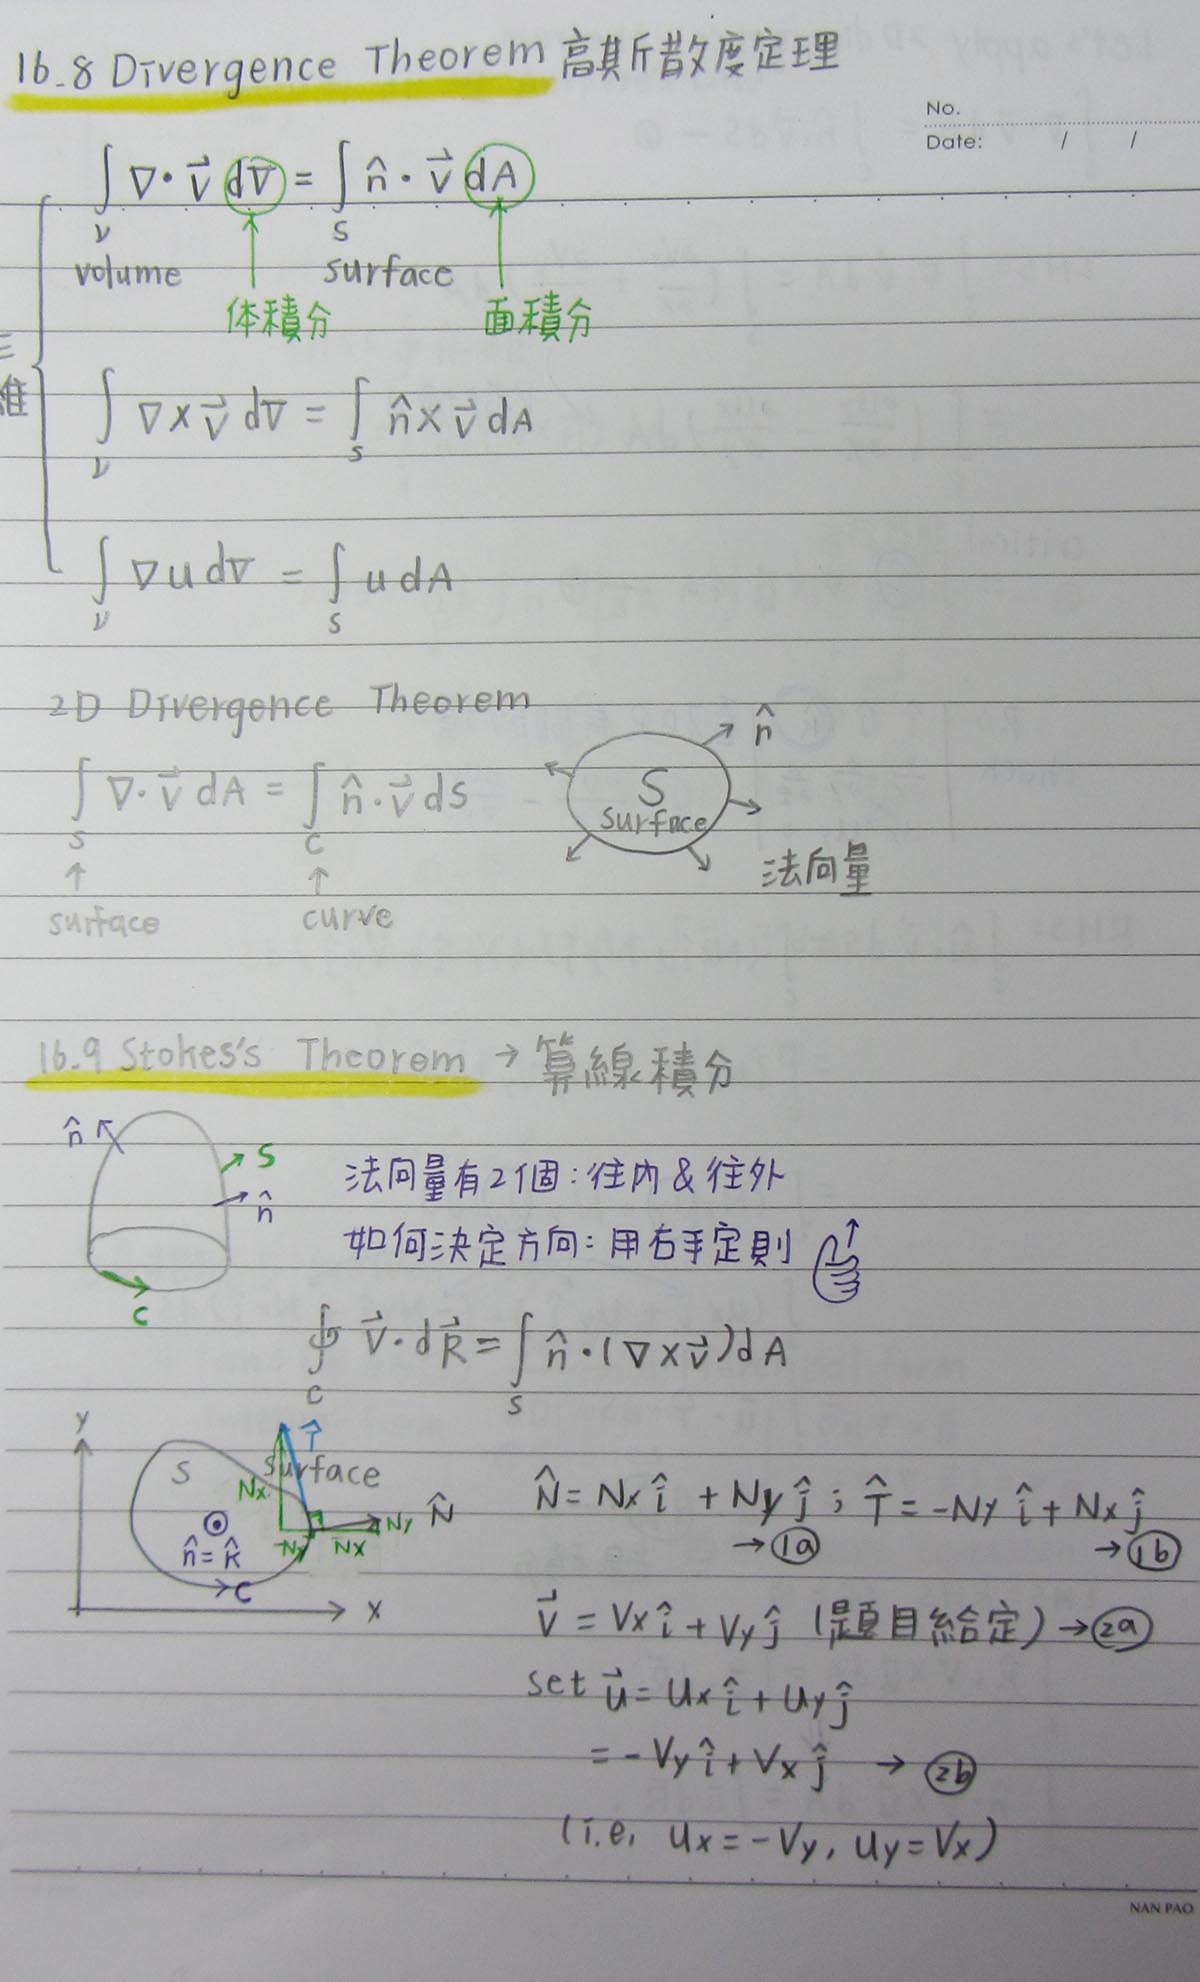 16.8 Divergence Theorem 高斯散度定理
No.
Date: / /
∫ ∇·v⃗ dV̶ = ∫ n̂·v⃗ dA
V S
volume surface
体積分 面積分
三維
∫ ∇×v⃗ dV̶ = ∫ n̂×v⃗ dA
V S
∫ ∇u dV̶ = ∫ u dA
V S
2D Divergence Theorem
∫ ∇·v⃗ dA = ∫ n̂·v⃗ ds
S C
↑ ↑
surface curve
n̂
S
surface
法向量
16.9 Stokes's Theorem → 算線積分
n̂ S
n̂
C
法向量有2個:往內&往外
如何決定方向:用右手定則
∮ v⃗·dR⃗ = ∫ n̂·(∇×v⃗)dA
C S
y
S T̂
surface
Nx
Ny N̂
-Ny Nx
n̂=k̂
C
x
N̂=Nxî+Nyĵ; T̂=-Nyî+Nxĵ
→ 1a → 1b
v⃗=Vxî+Vyĵ (題目給定) → 2a
set u⃗=Uxî+Uyĵ
=-Vyî+Vxĵ → 2b
(i.e, Ux=-Vy, Uy=Vx)
NAN PAO